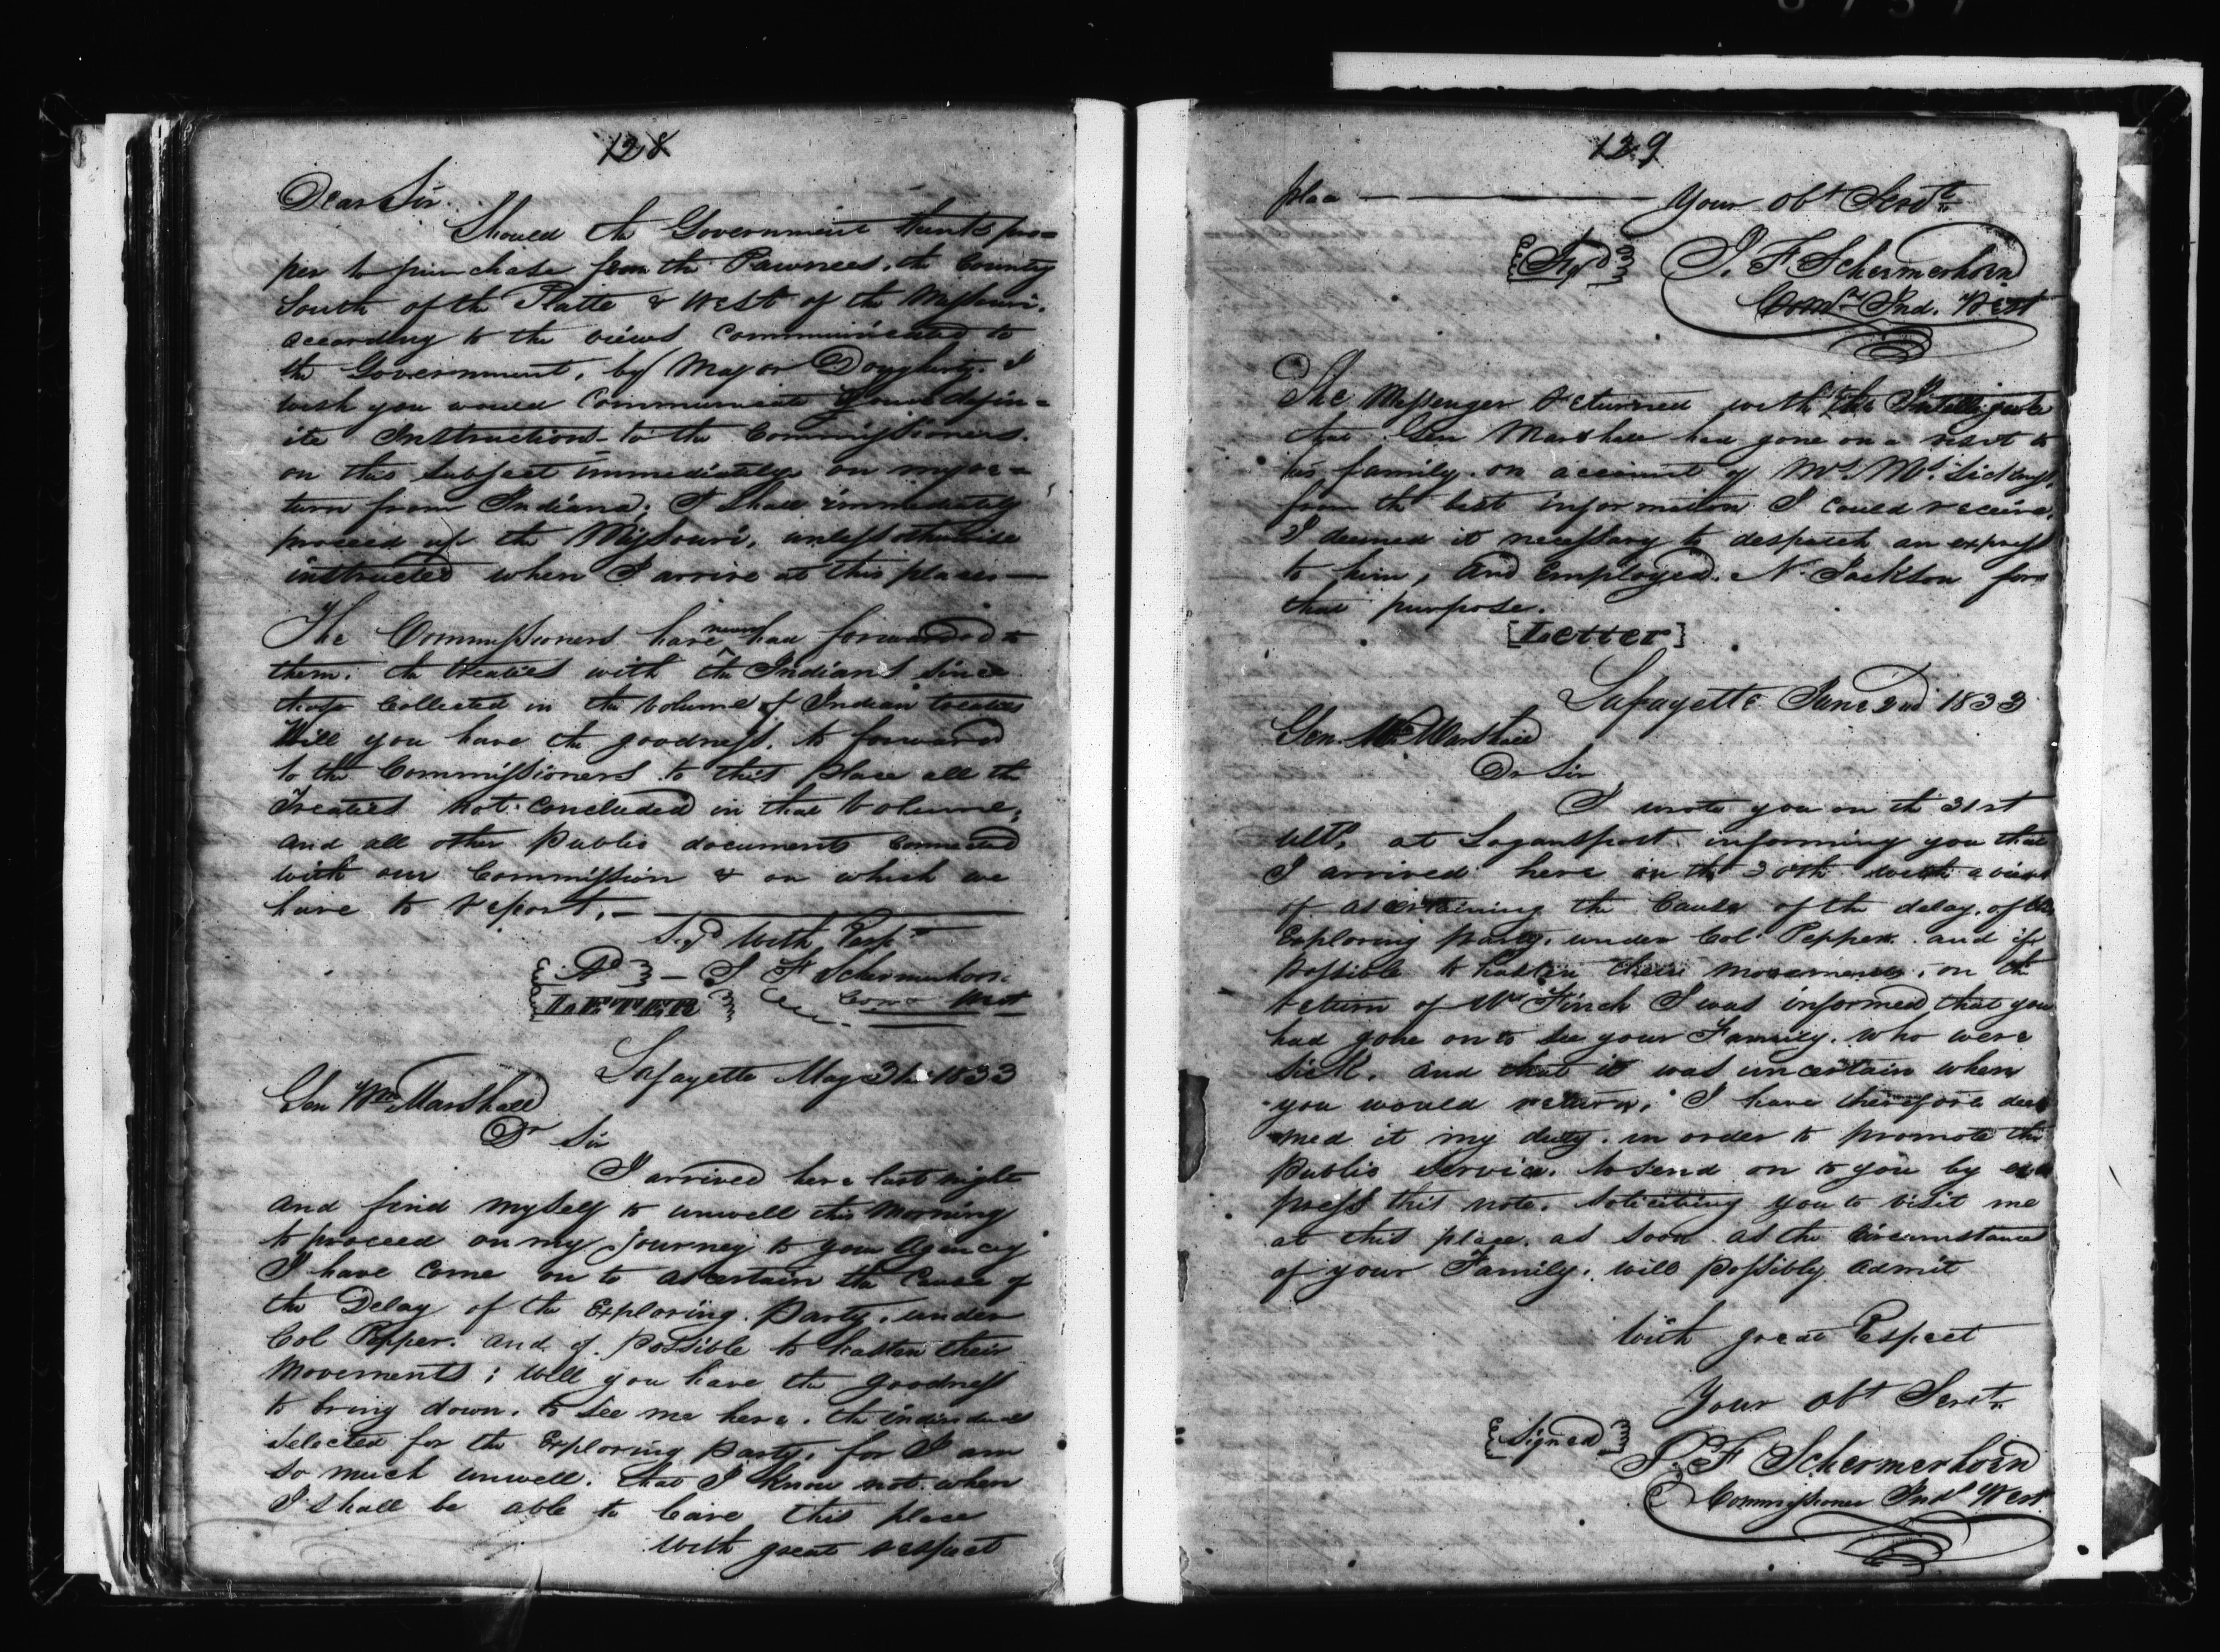 128
Dear Sir.
Should the Government think pro=
per to purchase from the Pawnees, the Country
South of the Platte & West of the Missouri.
according to the views communicated to
the Government, by Major Dougherty. I
wish you would communicate your defin=
ite Instructions to the Commissioners.
on this subject immediately on my re=
turn from Indiana; I shall immediately
proceed up the Missouri, unless otherwise
instructed when I arrive at this place—
The Commissioners have never had forwarded to
them. the treaties with the Indians since
those Collected in the Volume of Indian treaties
Will you have the goodness. to forward
to the Commissioners to this place all the
Treaties not concluded in that Volume,
and all other Public documents connected
with our Commission & on which we
have to report.—
Sigd With Resp
S F Schermerhorn
Com West
LETTER
Lafayette May 31st 1833
Gen Wm Marshall
Dr Sir
I arrived here last night
and find myself to unwell this Morning
to proceed on my Journey to your Agency
I have come on to ascertain the Cause of
the Delay of the Exploring Party, under
Col Pepper. and if possible to hasten their
Movements; Will you have the goodness
to bring down, to see me here. the individuals
selected for the Exploring Party, for I am
so much unwell. that I know not when
I shall be able to leave this place
With great respect
129
place — Your Obt Servt
J. F. Schermerhorn
Comr Ind. West
The Messenger returned with the Intelligence
that Gen Marshall had gone on a visit to
his family. on account of Mrs Ms. Sickness.
from the best information I could receive.
I deemed it necessary to despatch an express
to him, and Employed. N. Jackson for
that purpose.
[Letter]
Lafayette June 2nd 1833
Gen. Wm Marshall
Dr Sir
I wrote you on the 31st
Ulto. at Logansport. informing you that
I arrived here on the 30th with a view
of ascertaining the Cause of the delay. of the
Exploring Party. under Col Pepper. and if
possible to hasten their movements, on the
return of Mr Finch I was informed that you
had gone on to see your Family. who were
sick. and that it was uncertain when
you would return. I have therefore dee
med it my duty. in order to promote the
Public Service. to send on to you by ex
press this note. soliciting you to visit me
at this place. as soon as the Circumstances
of your Family. will possibly admit
With great Respect
Your Obt Servt
{Signed}
J. F Schermerhorn
Commissioner Ind West